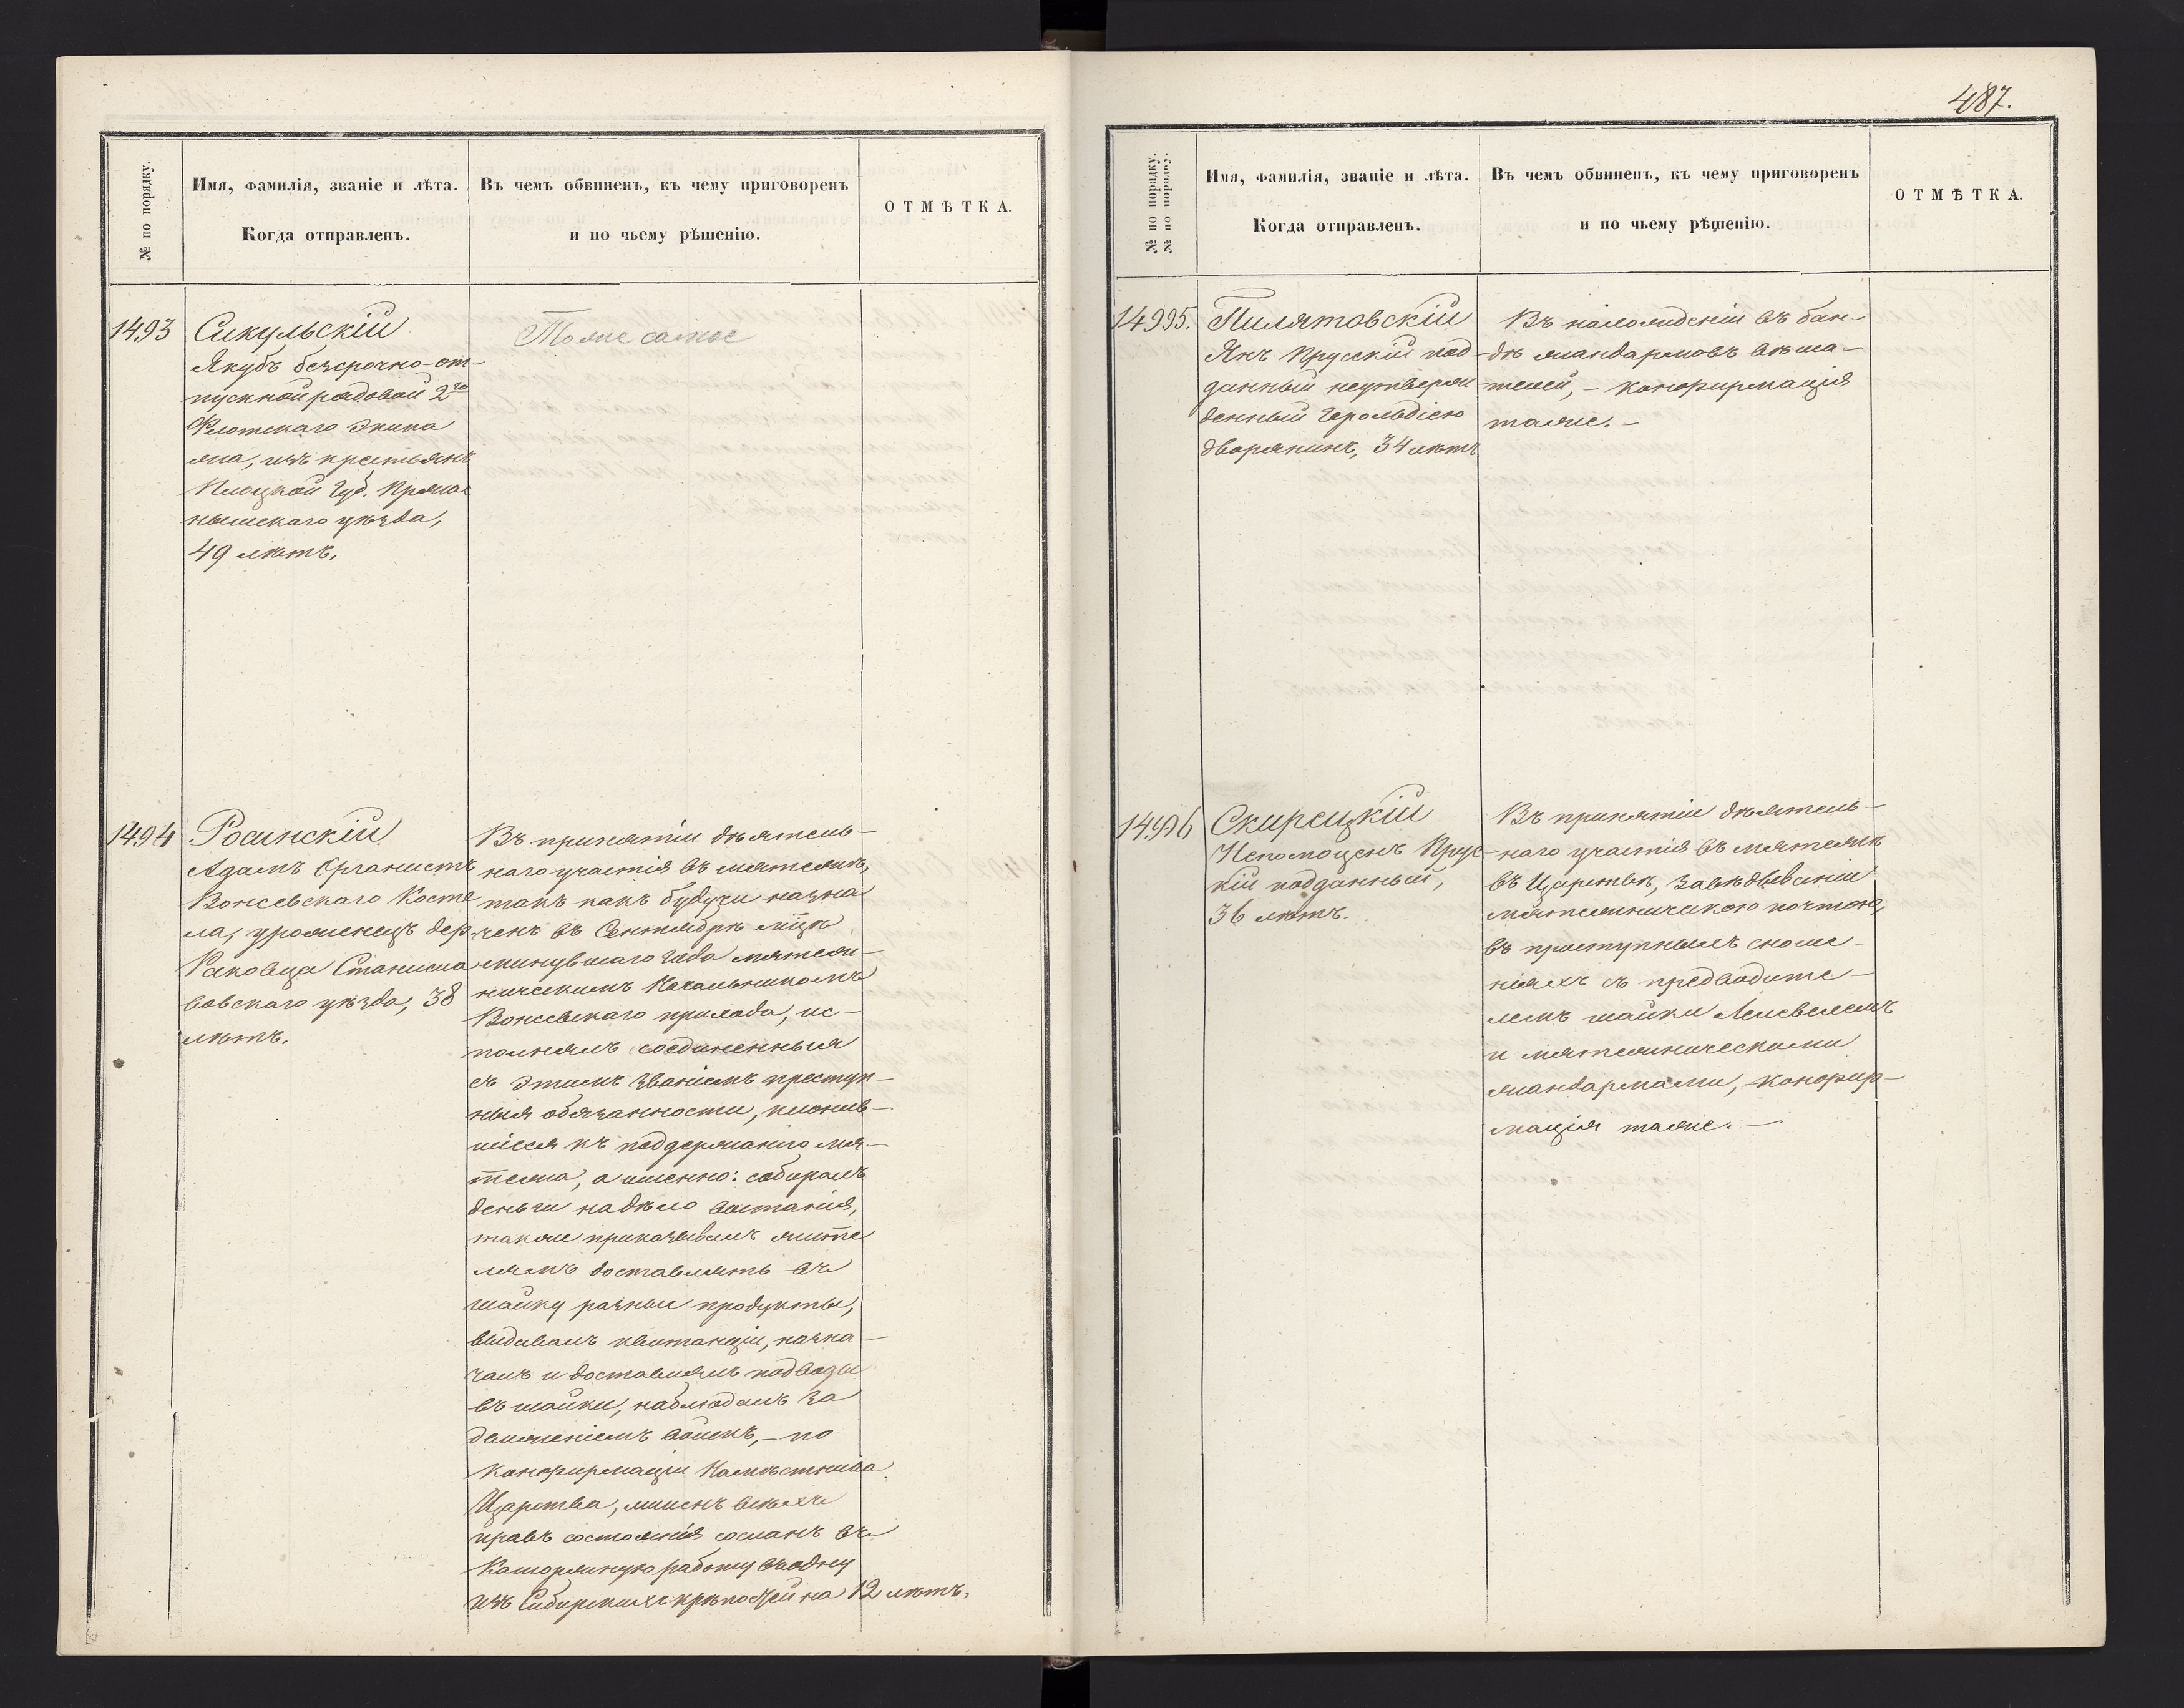 487.
№ по порядку.
Имя, фамилія, званіе и лѣта.
Когда отправленъ.
Въ чемъ обвиненъ, къ чему приговоренъ
и по чьему рѣшенію.
ОТМѢТКА.
1493
Сикульскій
Якубъ безсрочно-от-
пускной рядовой 2го
Флотскаго Экипа
жа, изъ крестьянъ
Плоцкой Губ. Прас
нышскаго уѣзда,
49 лѣтъ.
Тоже самое
1494
Росинскій
Адамъ Органистъ
Вонсевскаго Косте
ла, уроженецъ дер.
Раковца Станисла
вовскаго уѣзда, 38
лѣтъ.
Въ принятіи дѣятель-
наго участія въ мятежѣ,
такъ какъ будучи назна
ченъ въ Сентябрѣ м-цѣ
минувшаго года мятеж-
ническимъ Начальникомъ
Вонсевскаго прихода, ис-
полнялъ соединенныя
съ этимъ званіемъ преступ-
ныя обязанности, клонив-
шіеся къ поддержанію мя-
тежа, а именно: собиралъ
деньги на дѣло возстанія,
также приказывалъ жите
лямъ доставлять въ
шайку разные продукты,
выдавалъ квитанціи, назна-
чалъ и доставлялъ подводы
въ шайки, наблюдалъ за
движеніемъ войскъ, - по
конфирмаціи Намѣстника
Царства, лишенъ всѣхъ
правъ состоянія сосланъ въ
Каторжную работу въ одну
изъ Сибирскихъ крѣпостей на 12 лѣтъ.
№ по порядку.
№ по порядку.
Имя, фамилія, званіе и лѣта.
Когда отправленъ.
Въ чемъ обвиненъ, къ чему приговоренъ
и по чьему рѣшенію.
ОТМѢТКА.
14995.
Пилятовскій
Янъ Прусскій под-
данный неутверж
денный Герольдіею
дворянинъ, 34 лѣтъ
Въ нахожденіи въ бан-
дѣ жандармовъ вѣша-
телей, - конфирмація
таже. -
14996
Скирецкій
Непомоценъ Прус-
кій подданный,
36 лѣтъ.
Въ принятіи дѣятель-
наго участія въ мятежѣ
въ Царствѣ, завѣдываніи
мятежническою почтою,
въ преступныхъ сноше-
ніяхъ съ предводите-
лемъ шайки Лелевелемъ
и мятежническими
жандармами, конфир-
мація таже. -